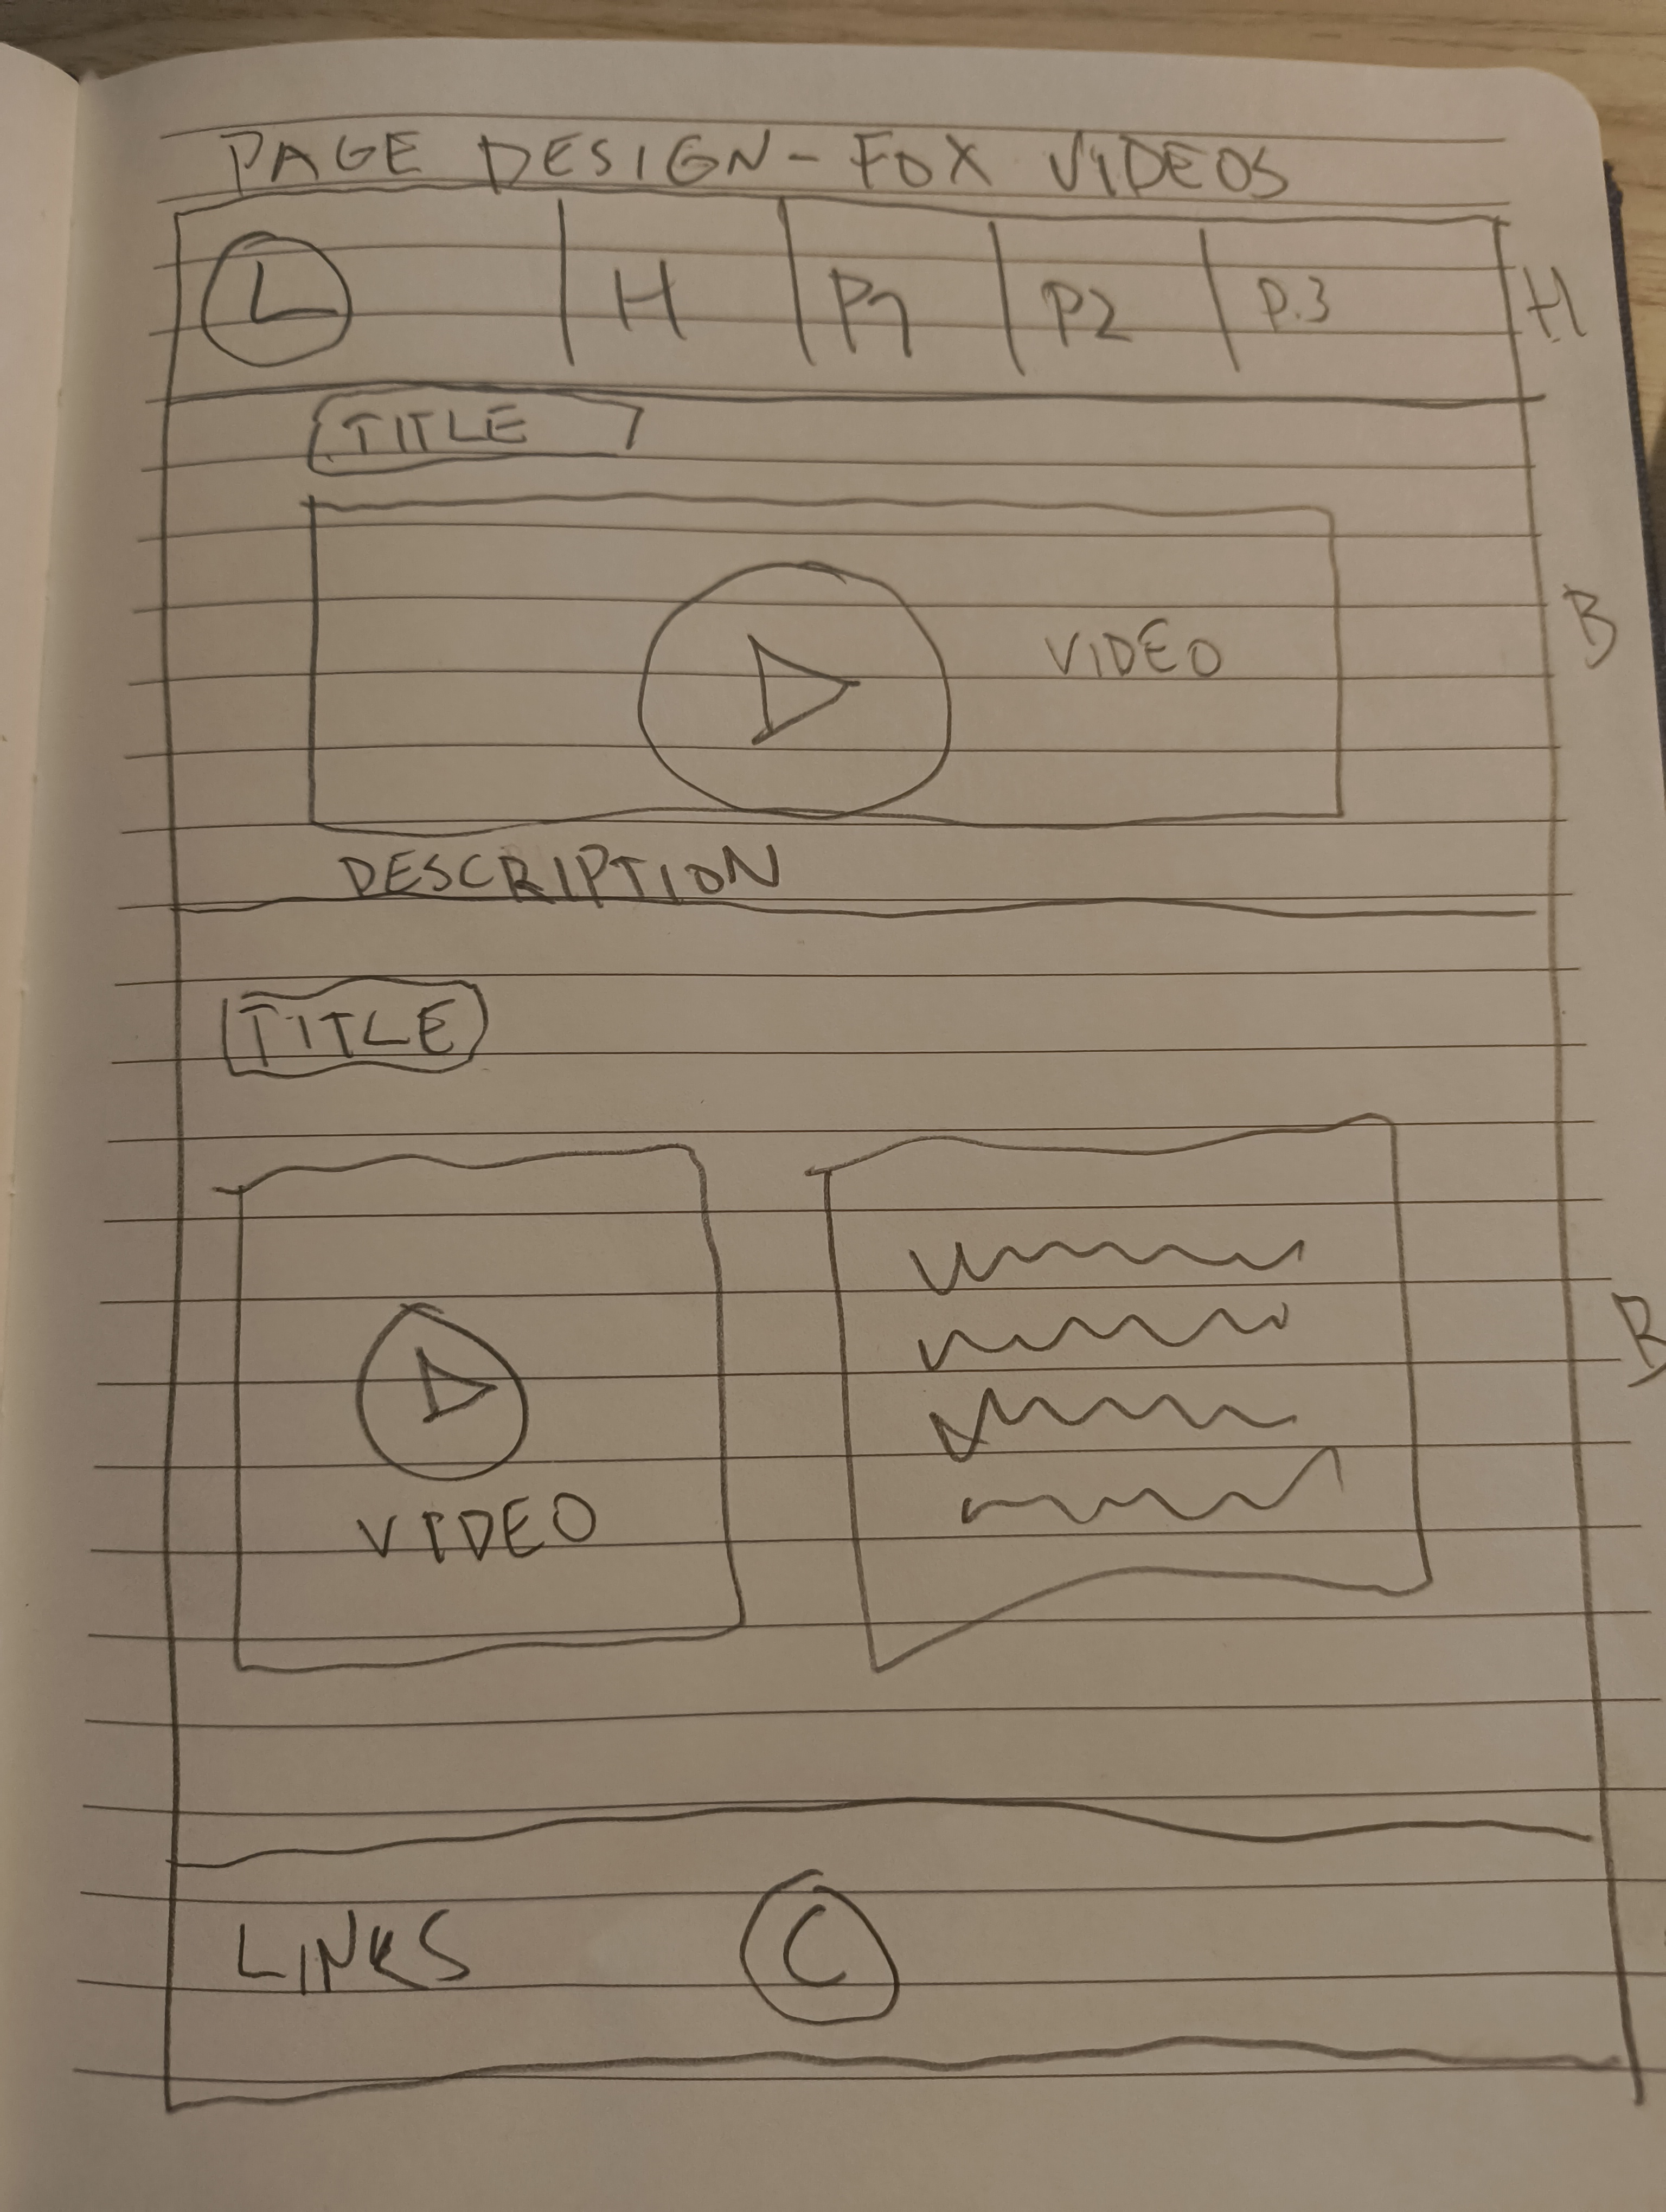 PAGE DESIGN - FOX VIDEOS
L H P1 P2 P.3 H
TITLE
VIDEO B
DESCRIPTION
TITLE
B
VIDEO
LINKS C